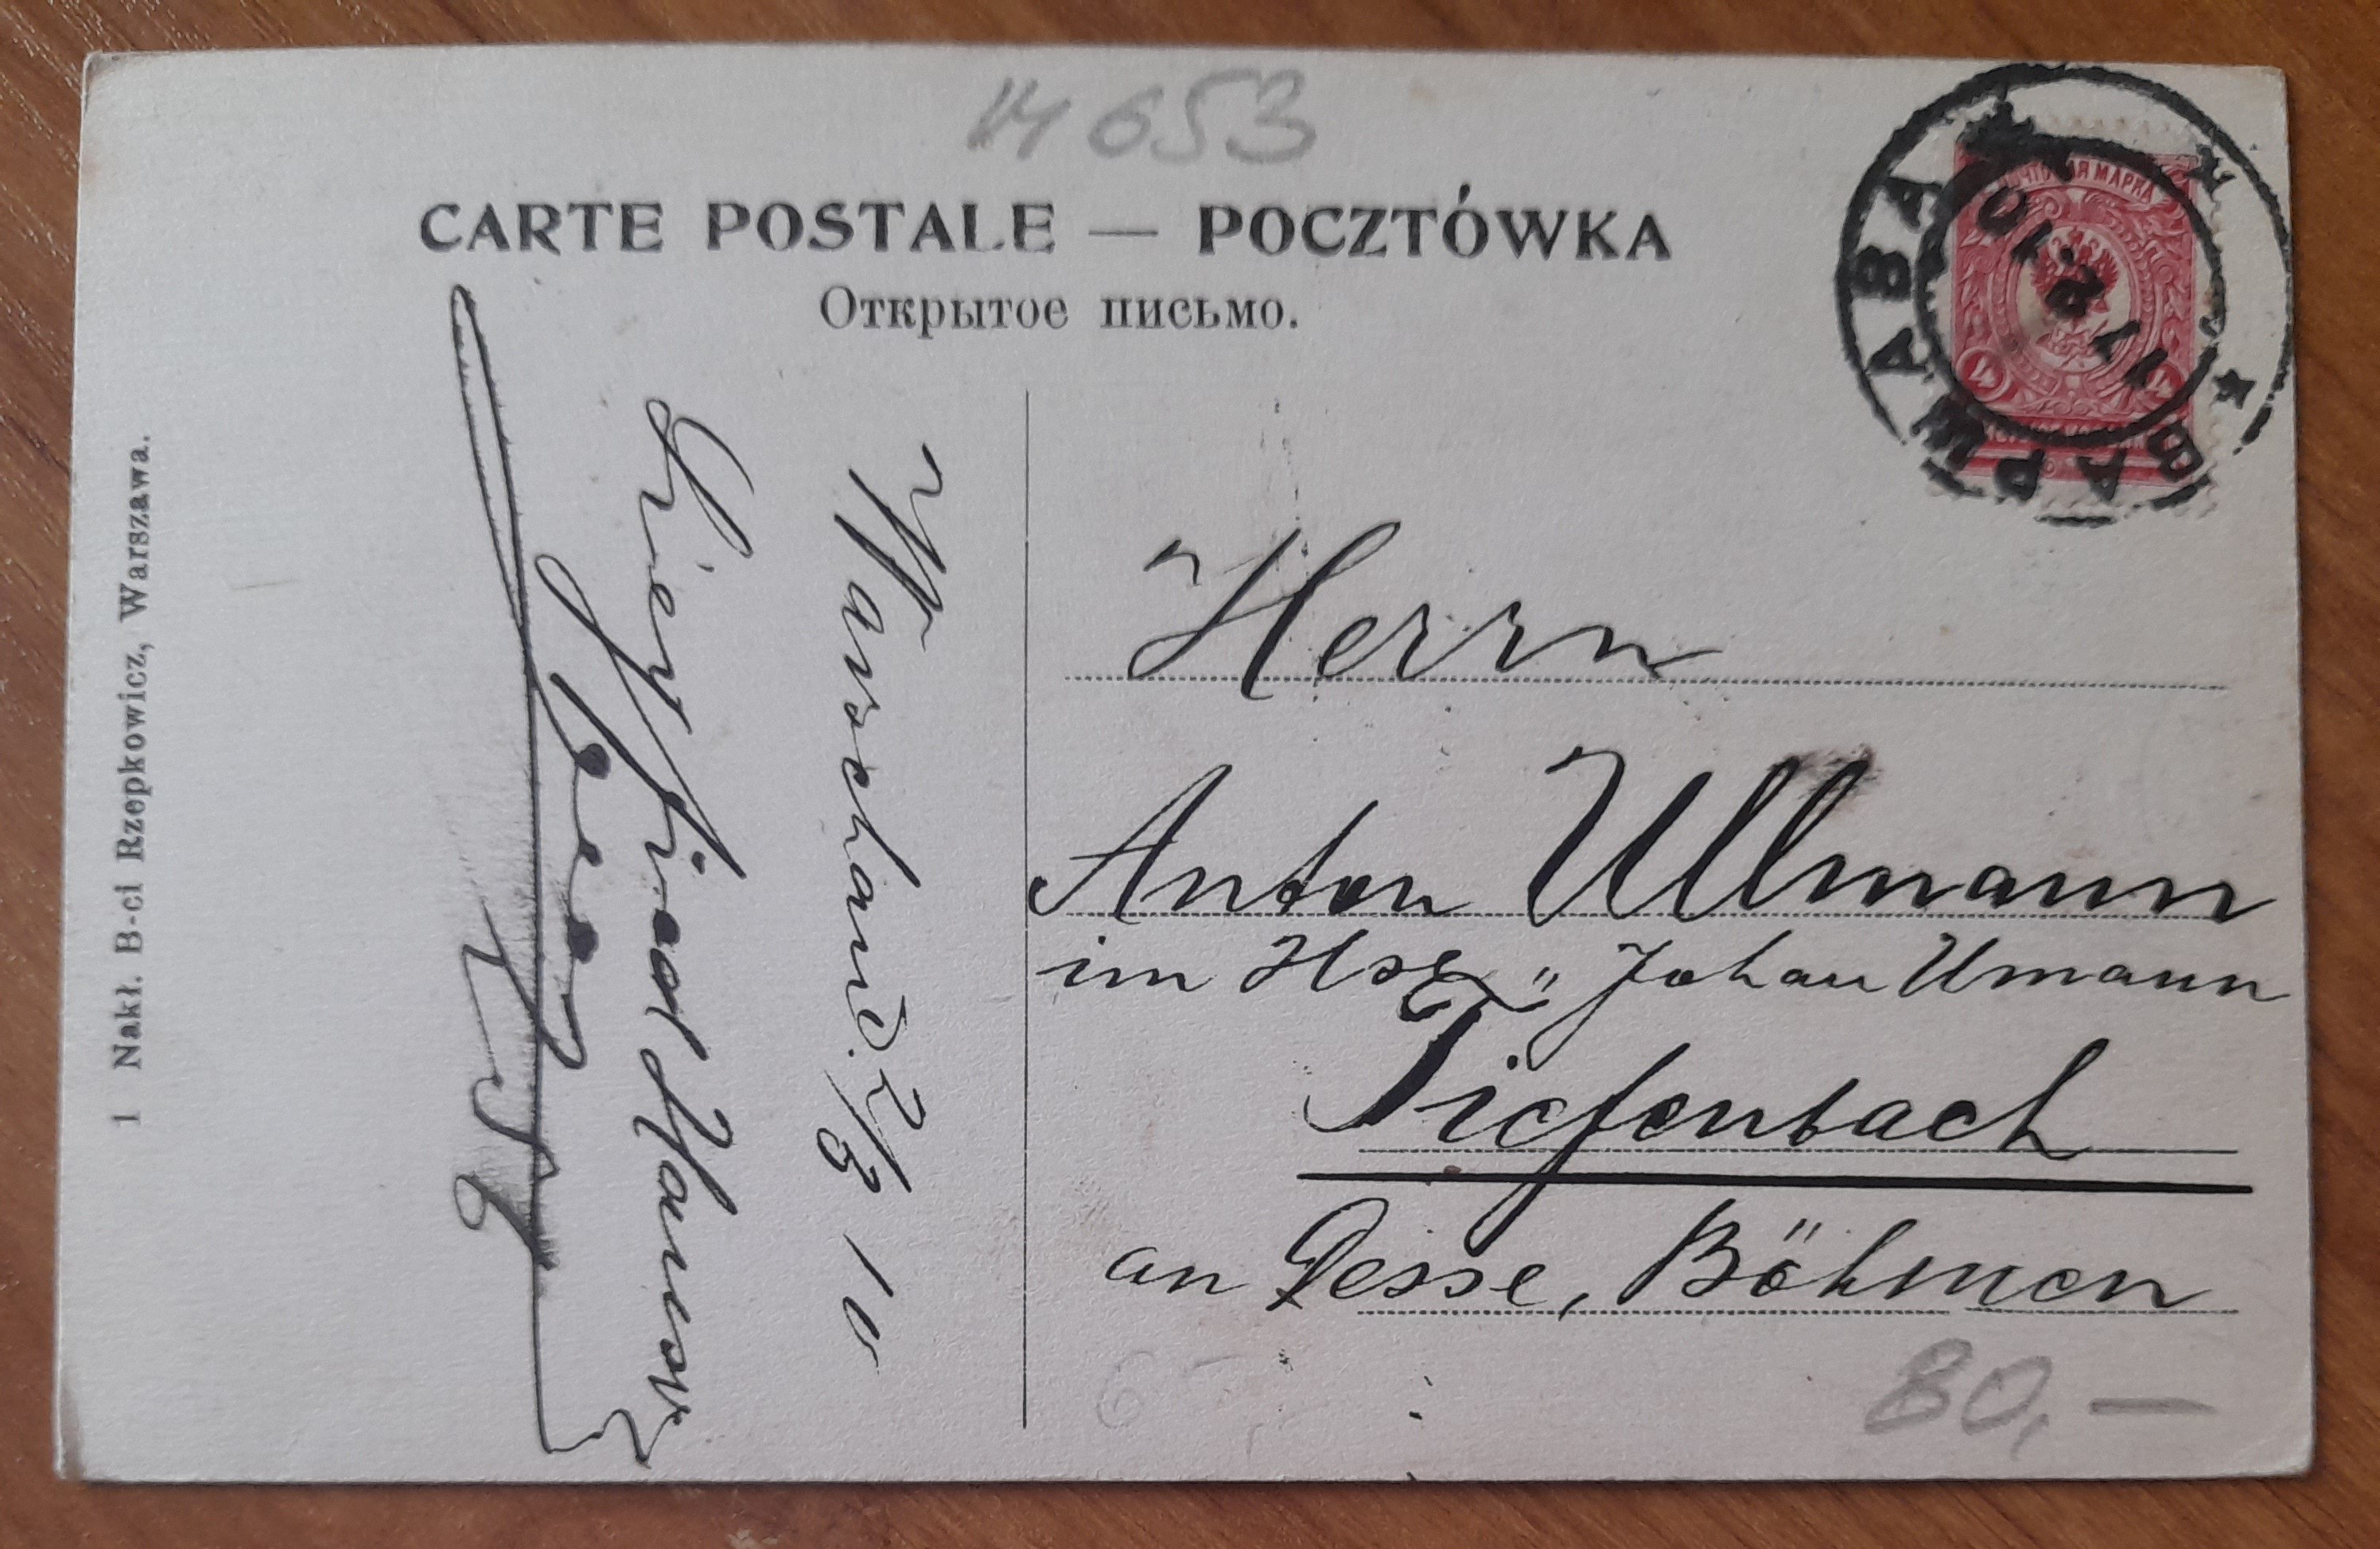 14653
CARTE POSTALE — POCZTÓWKA
Открытое письмо.
ВАРШАВА
17 2.10
МАРКА
4
4
1 Nakł. B-ci Rzepkowicz, Warszawa.
Warschau 2/3 10
Herrn
Anton Ullmann
im Hse „ Johan Umann
Tiefenbach
an Desse, Böhmen
80,—